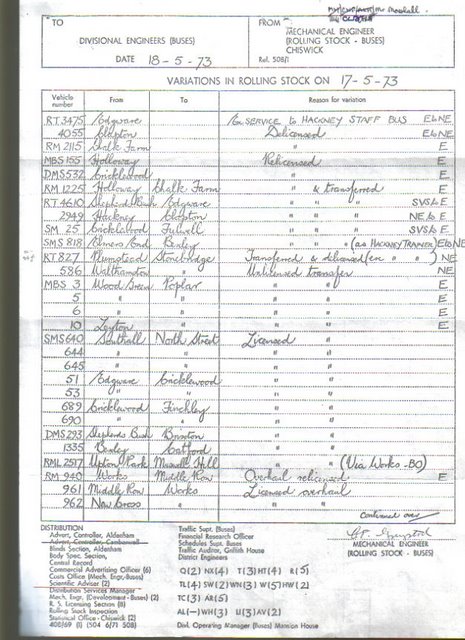 TO
DIVISIONAL ENGINEERS (BUSES)
DATE 18-5-73
FROM
MECHANICAL ENGINEER
(ROLLING STOCK - BUSES)
CHISWICK
Ref. 508/1
VARIATIONS IN ROLLING STOCK ON 17-5-73
Vehicle number From To Reason for variation
RT 3475 Edgware Ex SERVICE to HACKNEY STAFF BUS E & NE
4055 Clapton Delicensed E & NE
RM 2115 Chalk Farm " E
MBS 155 Holloway Relicensed E
DMS 532 Cricklewood " E
RM 1225 Holloway Chalk Farm " & transferred E
RT 4610 Shepherds Bush Edgware " " " SVS & E
2949 Hackney Clapton " " " NE & E
SM 25 Cricklewood Fulwell " " " SVS & E
SMS 818 Elmers End Bexley " " " (as HACKNEY TRAINER) E & NE
RT 827 Plumstead Stonebridge Transferred & delicensed (ex " " ) NE
586 Walthamstow " Unlicensed transfer NE
MBS 3 Wood Green Poplar " " E
5 " " " " E
6 " " " " E
10 Leyton " " " E
SMS 640 Southall North Street Licensed "
644 " " " "
645 " " " "
51 Edgware Cricklewood " "
53 " " " "
689 Cricklewood Finchley " "
690 " " " "
DMS 293 Shepherds Bush Brixton " "
1335 Bexley Catford " "
RML 2517 Upton Park Muswell Hill " " (Via Works - BO)
RM 940 Works Middle Row Overhaul relicensed E
961 Middle Row Works Licensed overhaul E
962 New Cross " " " E
Continued over
DISTRIBUTION
Advert. Controller, Aldenham
Advert. Controller, Camberwell
Blinds Section, Aldenham
Body Spec. Section,
Central Record
Commercial Advertising Officer (6)
Costs Office (Mech. Engr. Buses)
Scientific Adviser (2)
Distribution Services Manager
Mech. Engr. (Development - Buses) (2)
R. S. Licensing Section (8)
Rolling Stock Inspection
Statistical Office - Chiswick (2)
408/69 (1) (504 6/71 508)
Traffic Supt. (Buses)
Financial Research Officer
Schedules Supt. Buses
Traffic Auditor, Griffith House
District Engineers
Q(2) NX(4) T(3) HT(4) R(5)
TL(4) SW(2) WN(3) W(5) HW(2)
TC(3) AR(5)
AL(-) WH(3) U(3) AV(2)
Divl. Operating Manager (Buses) Mansion House
MECHANICAL ENGINEER
(ROLLING STOCK - BUSES)